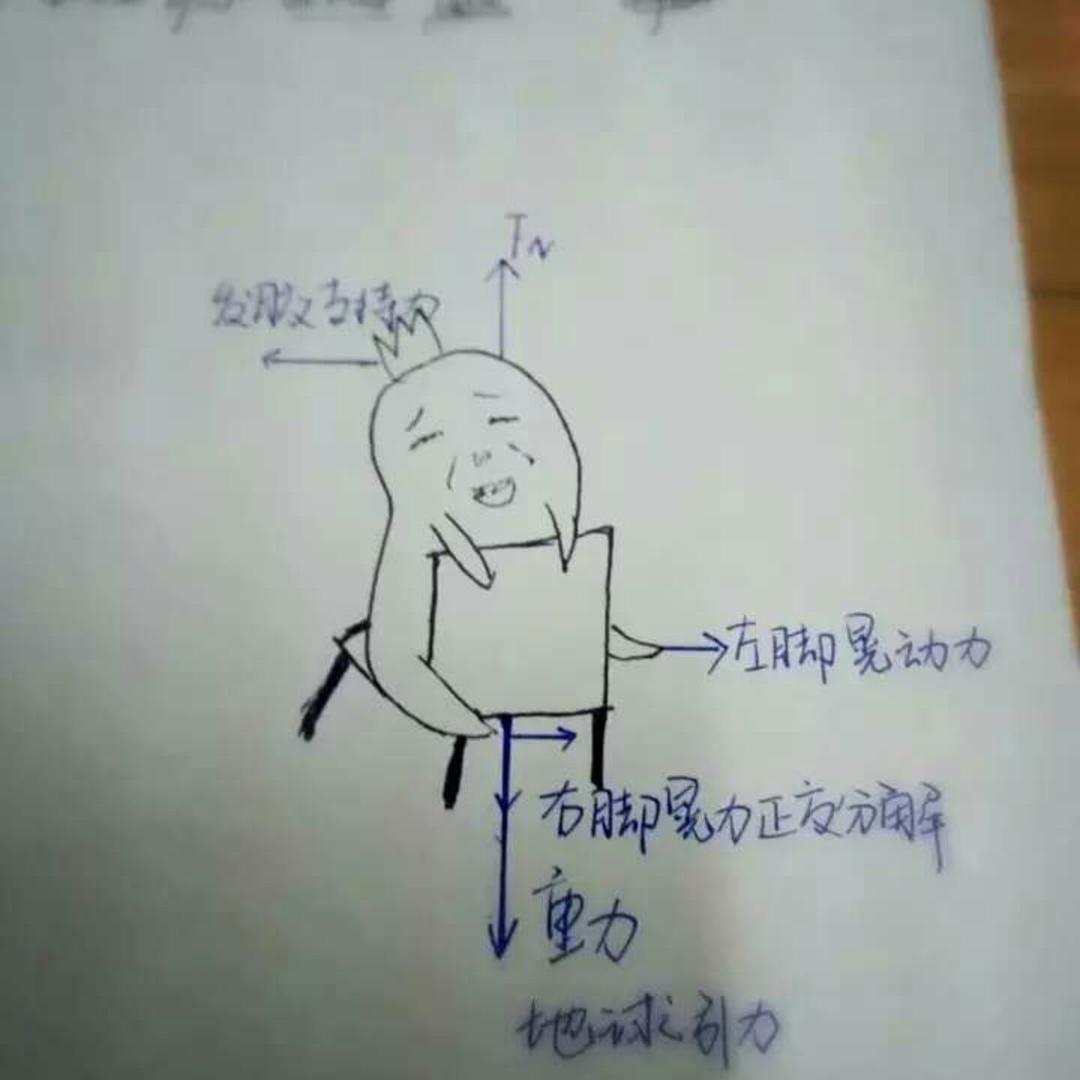 T_N
发股支持力
左脚晃动力
右脚晃力正交分解
重力
地球引力